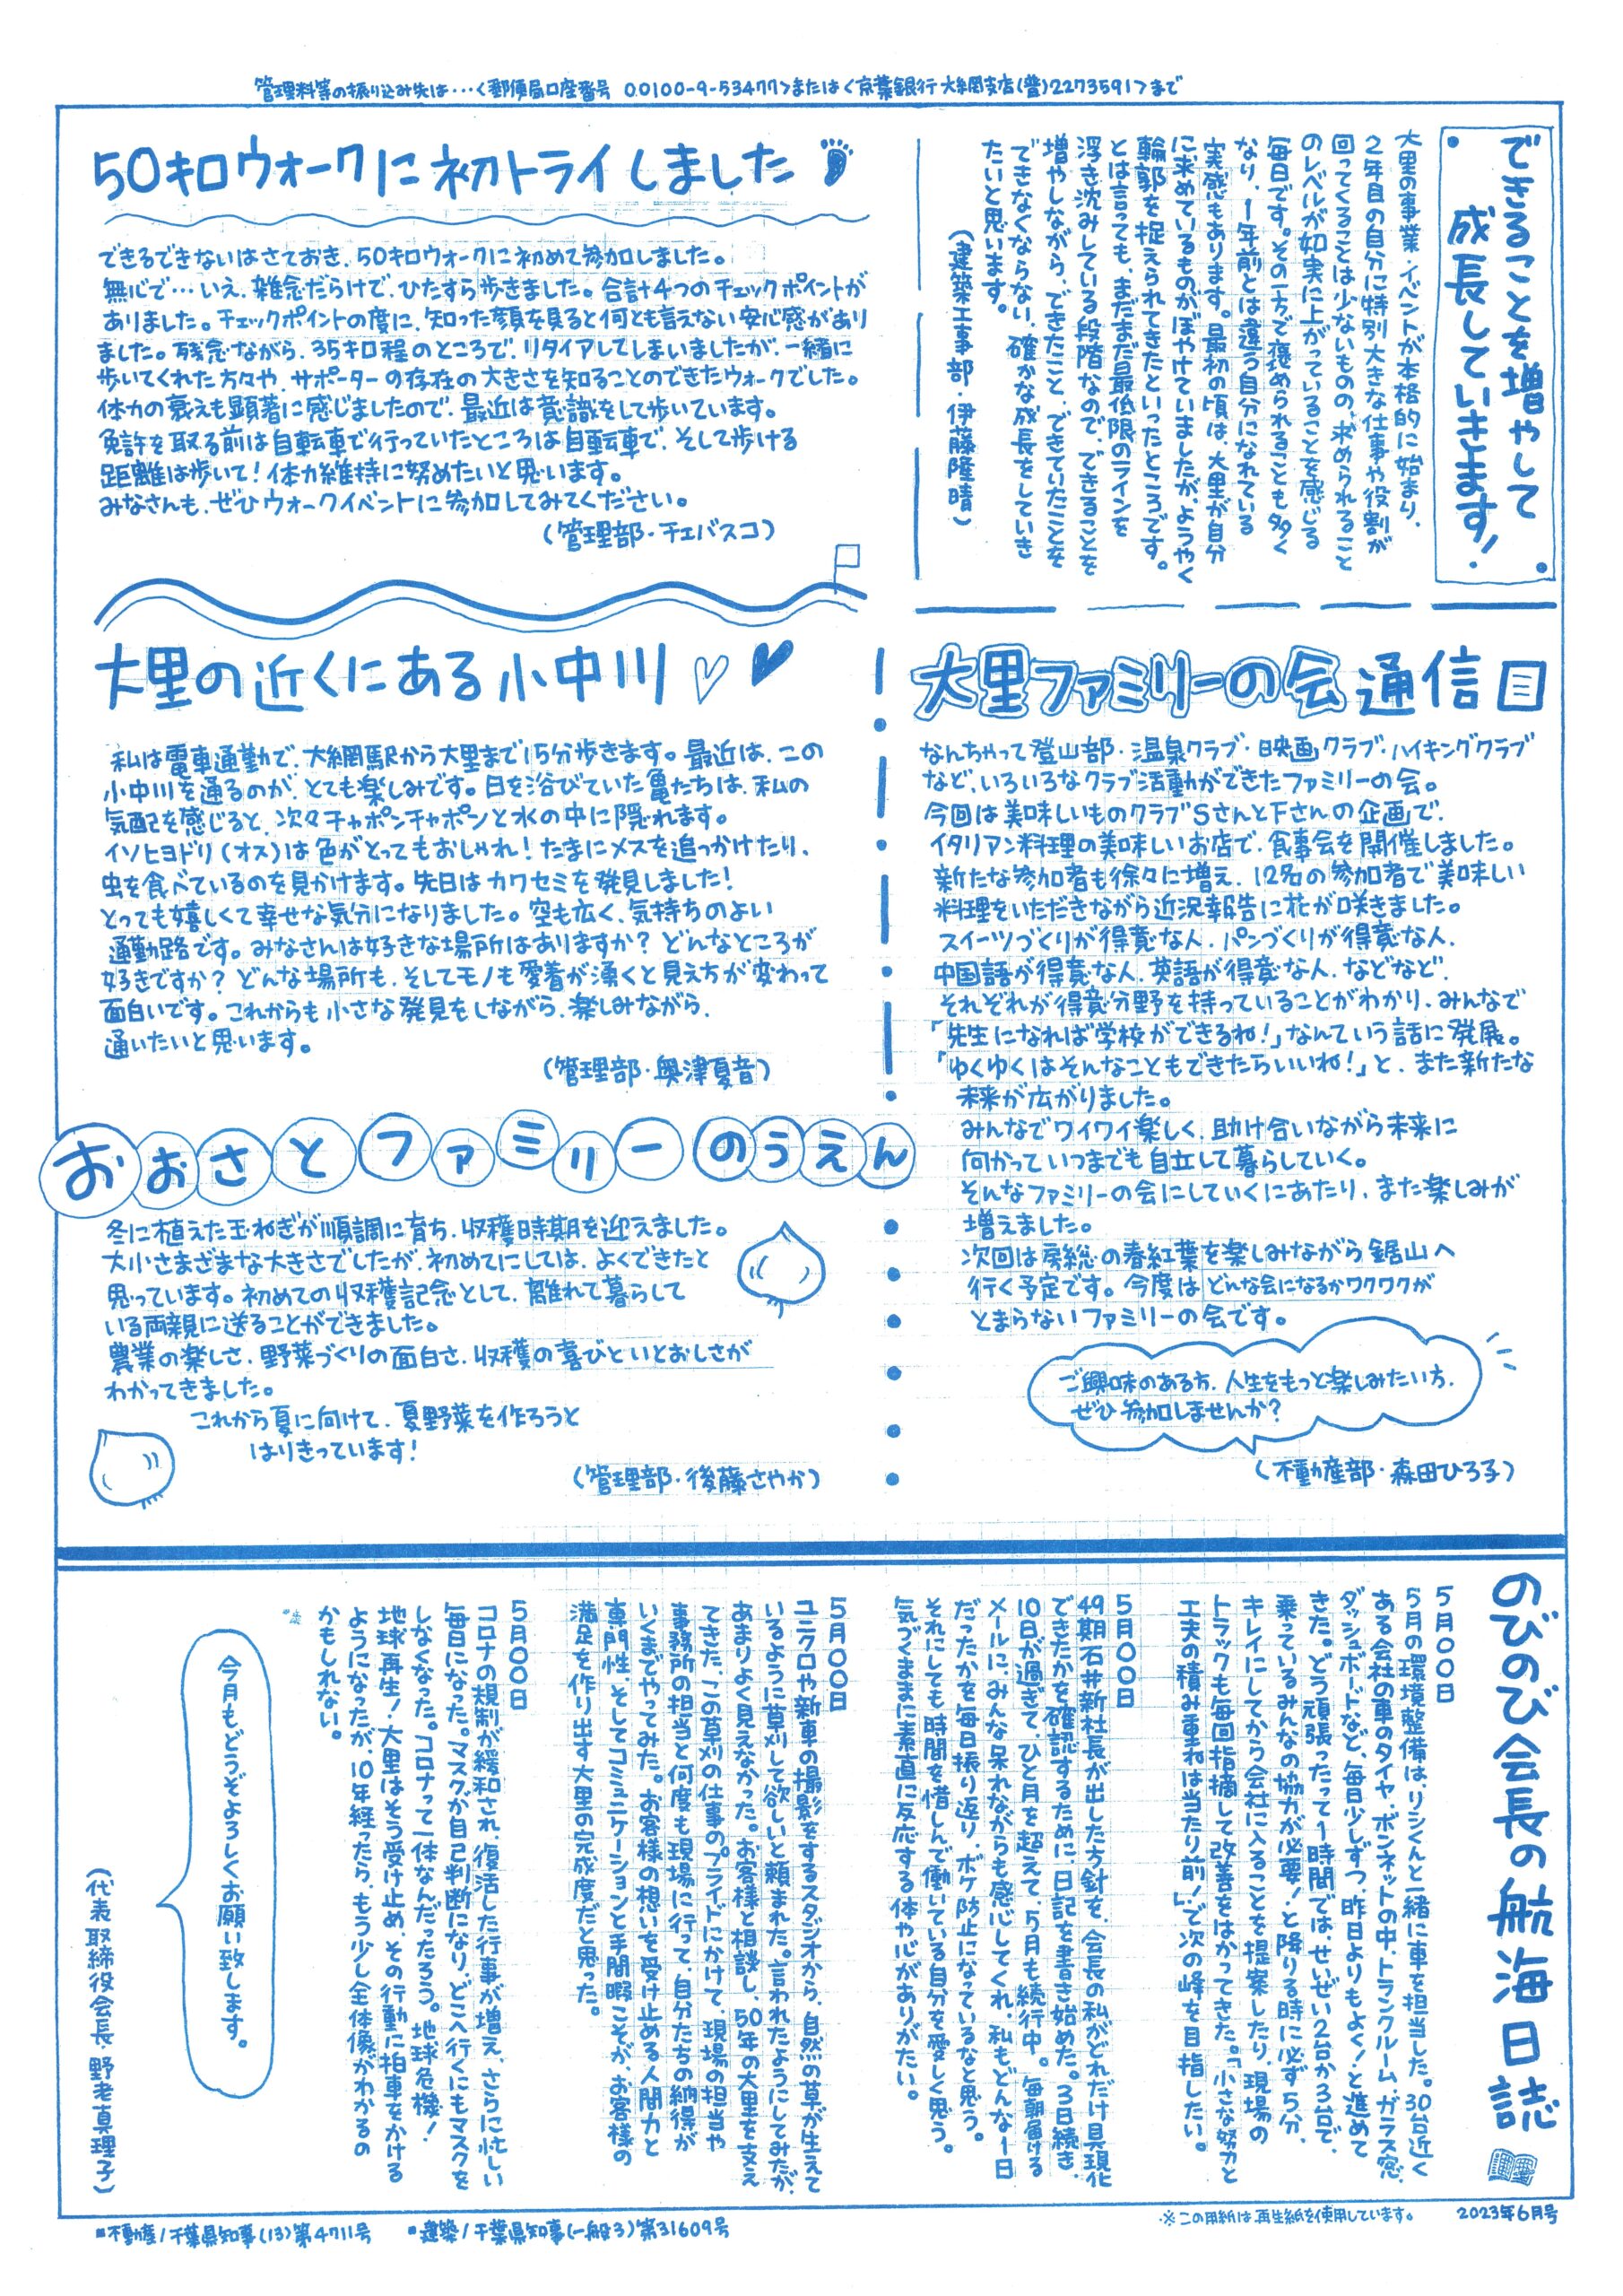 管理料等の振り込み先は…<郵便局口座番号 00100-9-53477>または<京葉銀行大網支店(普)2273591>まで
できることを増やして
成長していきます!
大里の事業・イベントが本格的に始まり、
2年目の自分に特別大きな仕事や役割が
回ってくることは少ないものの、求められること
のレベルが如実に上がっていることを感じる
毎日です。その一方で褒められることも多く
なり、1年前とは違う自分になれている
実感もあります。最初の頃は、大里が自分
に求めているものがぼやけていましたが、ようやく
輪郭を捉えられてきたといったところです。
とは言っても、まだまだ最低限のラインを
浮き沈みしている段階なので、できることを
増やしながら、できたこと、できていたことを
できなくならない、確かな成長をしていき
たいと思います。
(建築工事部・伊藤隆晴)
50キロウォークに初トライしました
できるできないはさておき、50キロウォークに初めて参加しました。
無心で…いえ、雑念だらけで、ひたすら歩きました。合計4つのチェックポイントが
ありました。チェックポイントの度に、知った顔を見ると何とも言えない安心感があり
ました。残念ながら、35キロ程のところで、リタイアしてしまいましたが、一緒に
歩いてくれた方々や、サポーターの存在の大きさを知ることのできたウォークでした。
体力の衰えも顕著に感じましたので、最近は意識をして歩いています。
免許を取る前は自転車で行っていたところは自転車で、そして歩ける
距離は歩いて!体力維持に努めたいと思います。
みなさんも、ぜひウォークイベントに参加してみてください。
(管理部・チェバスコ)
大里の近くにある小中川
私は電車通勤で、大網駅から大里まで15分歩きます。最近は、この
小中川を通るのが、とても楽しみです。日を浴びていた亀たちは、私の
気配を感じると、次々チャポンチャポンと水の中に隠れます。
イソヒヨドリ(オス)は色がとってもおしゃれ!たまにメスを追っかけたり、
虫を食べているのを見かけます。先日はカワセミを発見しました!
とっても嬉しくて幸せな気分になりました。空も広く、気持ちのよい
通勤路です。みなさんは好きな場所はありますか?どんなところが
好きですか?どんな場所も、そしてモノも愛着が湧くと見え方が変わって
面白いです。これからも小さな発見をしながら、楽しみながら、
通いたいと思います。
(管理部・奥津夏音)
大里ファミリーの会通信
なんちゃって登山部・温泉クラブ・映画クラブ・ハイキングクラブ
など、いろいろなクラブ活動ができたファミリーの会。
今回は美味しいものクラブSさんと下さんの企画で、
イタリアン料理の美味しいお店で、食事会を開催しました。
新たな参加者も徐々に増え、12名の参加者で美味しい
料理をいただきながら近況報告に花が咲きました。
スイーツづくりが得意な人、パンづくりが得意な人、
中国語が得意な人、英語が得意な人、などなど、
それぞれが得意分野を持っていることがわかり、みんなで
「先生になれば学校ができるね!」なんていう話に発展。
「ゆくゆくはそんなこともできたらいいね!」と、また新たな
未来が広がりました。
みんなでワイワイ楽しく、助け合いながら未来に
向かっていつまでも自立して暮らしていく。
そんなファミリーの会にしていくにあたり、また楽しみが
増えました。
次回は房総の春紅葉を楽しみながら鋸山へ
行く予定です。今度はどんな会になるかワクワクが
とまらないファミリーの会です。
ご興味のある方、人生をもっと楽しみたい方、
ぜひ参加しませんか?
(不動産部・森田ひろ子)
おおさとファミリーのうえん
冬に植えた玉ねぎが順調に育ち、収穫時期を迎えました。
大小さまざまな大きさでしたが、初めてにしては、よくできたと
思っています。初めての収穫記念として、離れて暮らして
いる両親に送ることができました。
農業の楽しさ、野菜づくりの面白さ、収穫の喜びといとおしさが
わかってきました。
これから夏に向けて、夏野菜を作ろうと
はりきっています!
(管理部・後藤さやか)
のびのび会長の航海日誌
5月○○日
5月の環境整備は、リシくんと一緒に車を担当した。30台近く
ある会社の車のタイヤ、ボンネットの中、トランクルーム、ガラス窓、
ダッシュボードなど、毎日少しずつ、昨日よりもよく!と進めて
きた。どう頑張ったって1時間では、せいぜい2台か3台で、
乗っているみんなの協力が必要!と降りる時に必ず5分、
キレイにしてから会社に入ることを提案したり、現場の
トラックも毎回指摘して改善をはかってきた。「小さな努力と
工夫の積み重ねは当たり前!」で次の峰を目指したい。
5月○○日
49期石井新社長が出した方針を、会長の私がどれだけ具現化
できたかを確認するために、日記を書き始めた。3日続き、
10日が過ぎて、ひと月を超えて、5月も続行中。毎朝届ける
メールに、みんな呆れながらも感じてくれ、私もどんな1日
だったかを毎日振り返り、ボケ防止になっているなと思う。
それにしても時間を惜しんで働いている自分を愛しく思う。
気づくままに素直に反応する体や心がありがたい。
5月○○日
ユニクロや新車の撮影をするスタジオから、自然の草が生えて
いるように草刈して欲しいと頼まれた。言われたようにしてみたが、
あまりよく見えなかった。お客様と相談し、50年の大里を支え
てきた、この草刈の仕事のプライドにかけて、現場の担当や
事務所の担当と何度も現場に行って、自分たちの納得が
いくまでやってみた。お客様の想いを受け止める人間力と
専門性、そしてコミュニケーションと手間暇こそが、お客様の
満足を作り出す大里の完成度だと思った。
5月○○日
コロナの規制が緩和され、復活した行事が増え、さらに忙しい
毎日になった。マスクが自己判断になり、どこへ行くにもマスクを
しなくなった。コロナって一体なんだったろう。地球危機!
地球再生!大里はそう受け止め、その行動に拍車をかける
ようになったが、10年経ったら、もう少し全体像がわかるの
かもしれない。
今月もどうぞよろしくお願い致します。
(代表取締役会長・野老真理子)
■不動産/千葉県知事(13)第4711号 ■建築/千葉県知事(一般3)第31609号
※この用紙は、再生紙を使用しています。 2023年6月号